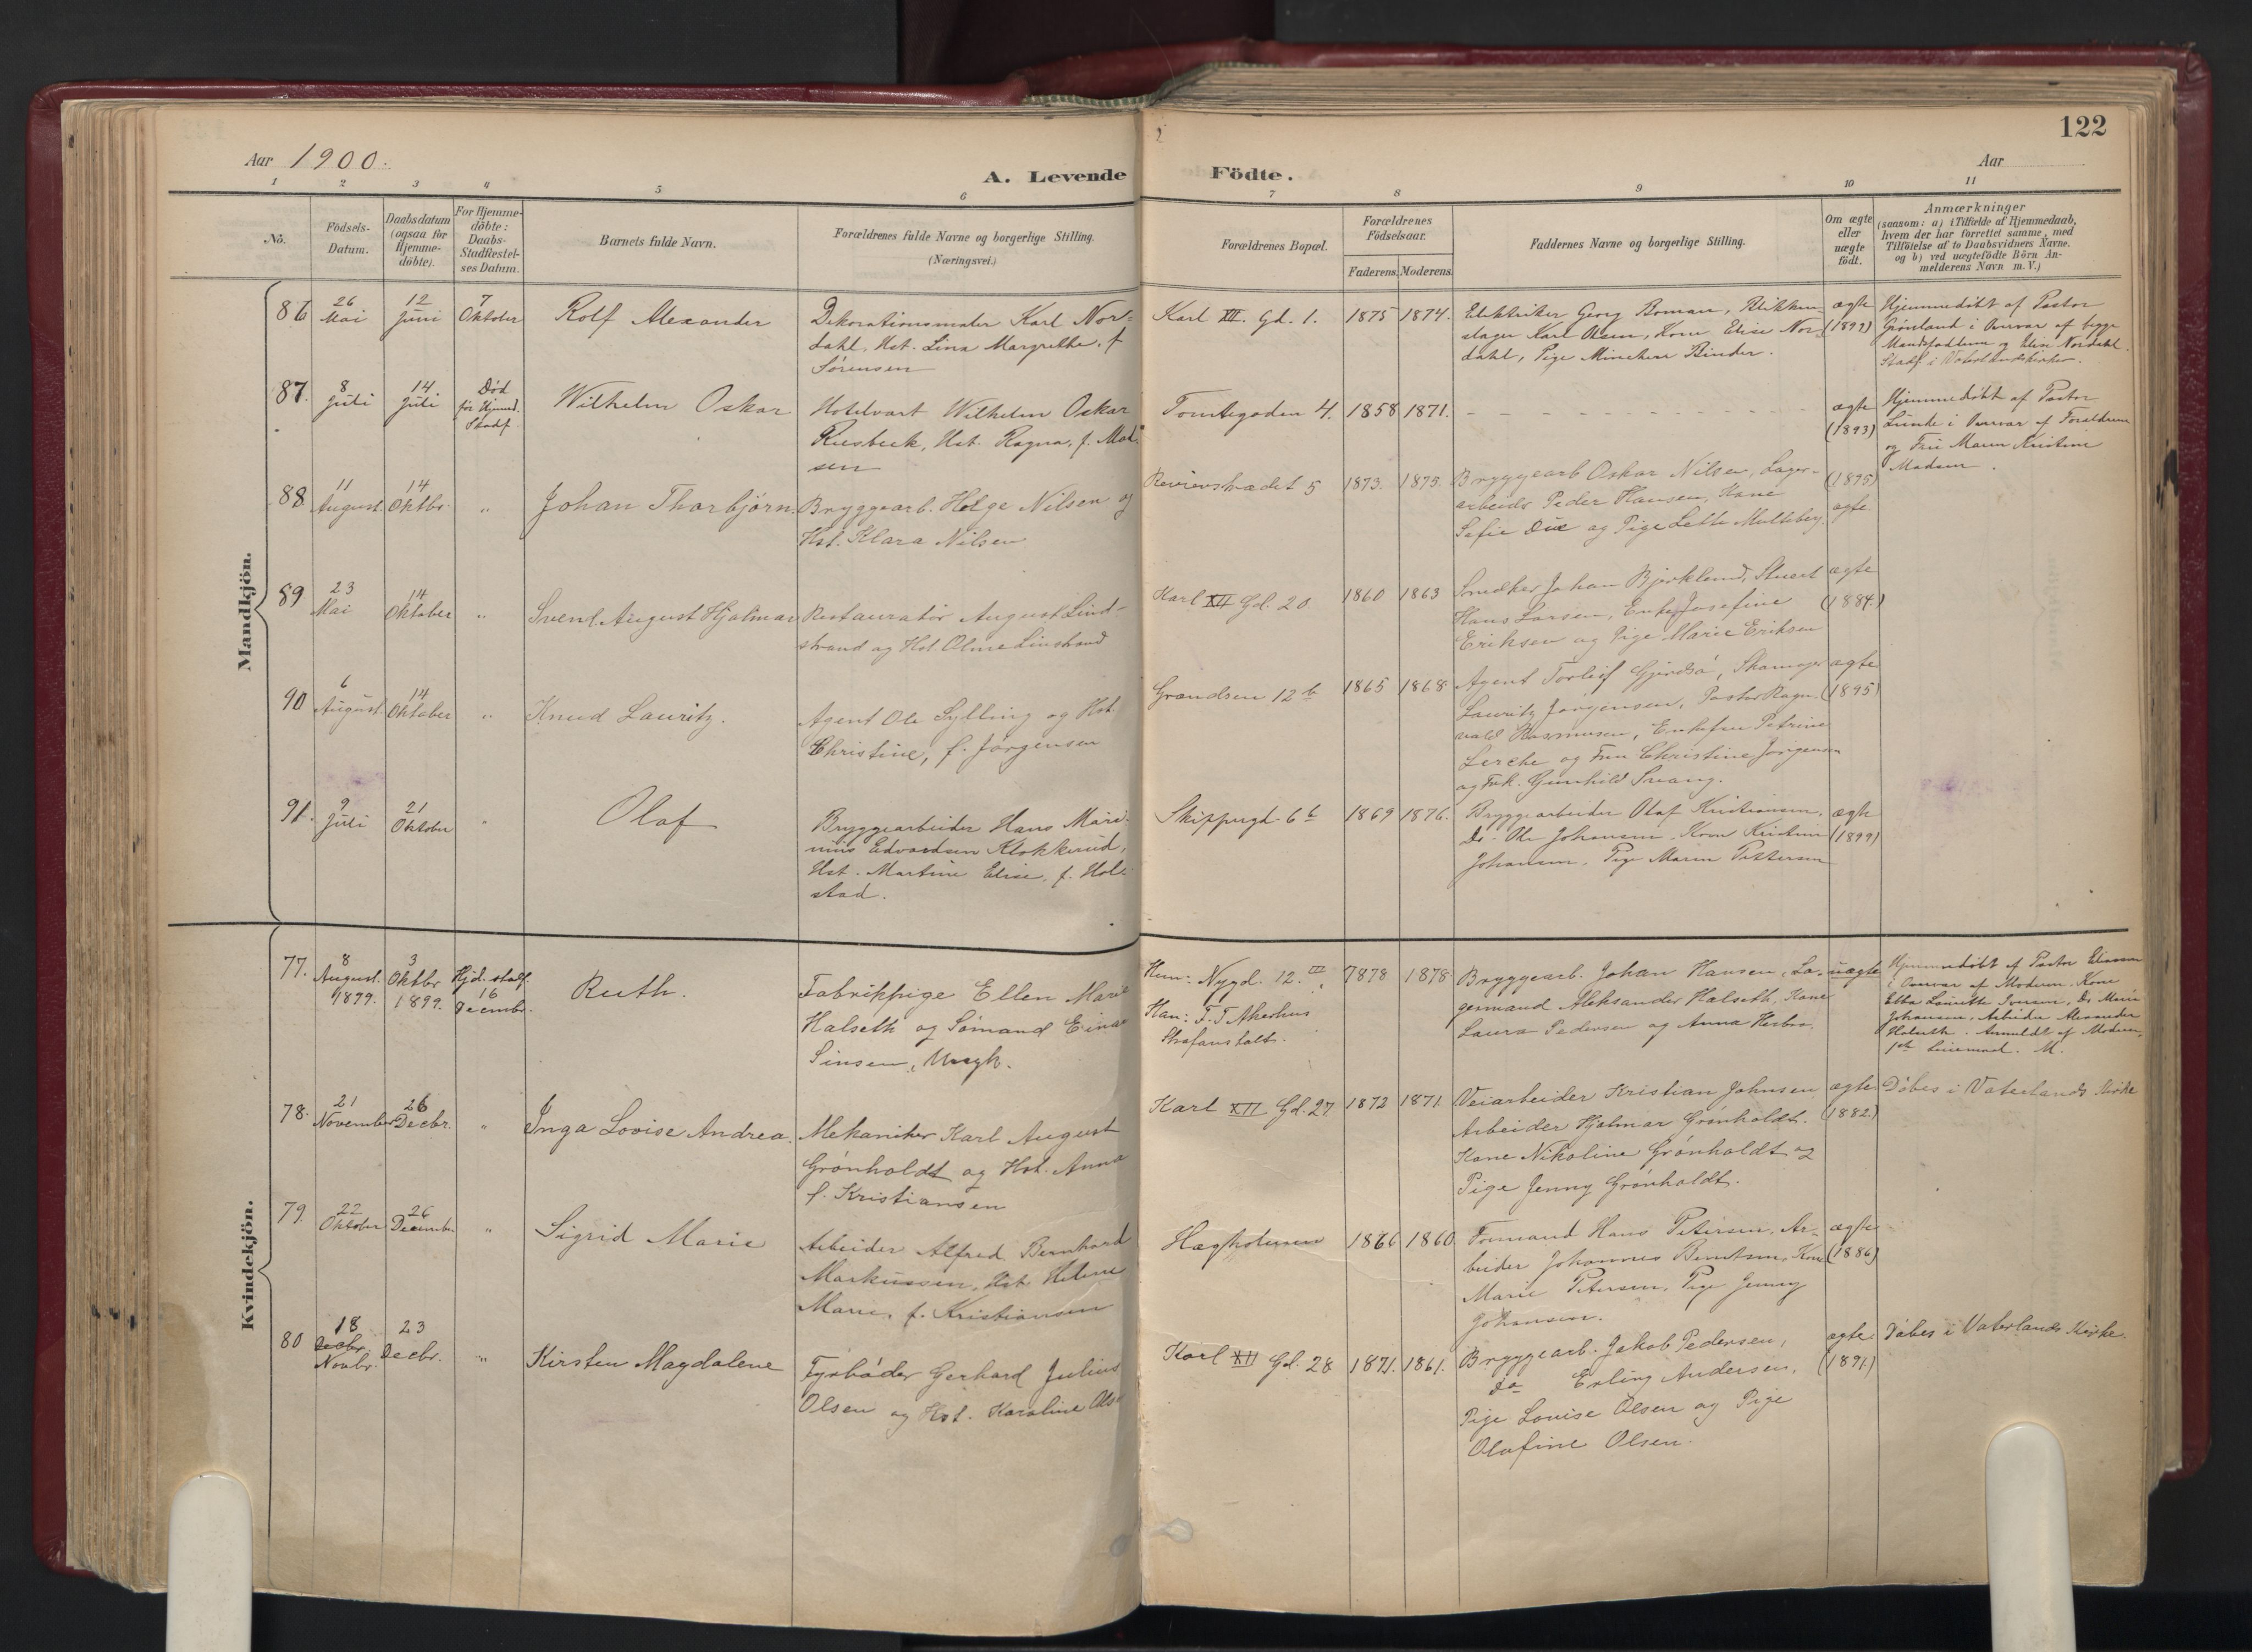 122
Aar 1900.
Aar
A. Levende Födte.
1 2 3 4 5 6 7 8 9 10 11
Nö.
Födsels-
Datum.
Daabsdatum
(ogsaa for
Hjemme-
döbte).
For Hjemme-
döbte:
Daabs-
Stadfæstel-
ses Datum.
Barnets fulde Navn.
Forældrenes fulde Navne og borgerlige Stilling.
(Næringsvei.)
Forældrenes Bopæl.
Forældrenes
Födselsaar.
Faderens. Moderens.
Faddernes Navne og borgerlige Stilling.
Om ægte
eller
uægte
födt.
Anmærkninger
(saasom: a) i Tilfælde af Hjemmedaab,
hvem der har forrettet samme, med
Tilföielse af to Daabsvidners Navne.
og b) ved uægtefödte Börn An-
melderens Navn m. V.)
Mandkjön.
86
26
Mai
12
Juni
7
Oktober
Rolf Alexander
Dekorationsmaler Karl Nor-
dahl, Hst. Lina Margrethe, f
Sørensen
Karl XII. Gd. 1.
1875 1874.
Elektriker Georg Boman, Blikken-
slager Karl Olsen, Kone Elise Nor-
dahl, Pige Binder.
ægte
(1899)
Hjemmedøbt af Pastor
Grönland i Overvær af begge
Mandsfaddere og Elise Nordahl.
Stadf. i Vaterlandskirken.
87.
8
Juli
14
Juli
Död
før Hjemmed.
Stadf.
Wilhelm Oskar
Hotelvært Wilhelm Oskar
Hst. Ragna, f. Mad-
sen
Tomtegaden 4.
1858 1871.
ægte
(1893)
Hjemmedøbt af Pastor
Lunde i Overvær af Forældrene
og Fru Maren Kristine
Madsen.
88.
11
August.
14
Oktbr.
"
Johan Thorbjørn.
Bryggearb. Helge Nilsen og
Hst. Klara Nilsen
Revierstrædet 5
1873. 1875.
Bryggearb Oskar Nilsen, Lager-
arbeider Peder Hansen, Kone
Sofie Die og Pige Lette Multeberg.
(1895)
ægte.
89
23
Mai
14
Oktober
"
Svend August Hjalmar
Restauratör August Lind-
strand og Hst Olme Linstrand
Karl XII Gd. 20
1860 1863
Snedker Johan Bjørklund, Stuert
Hans Larsen, Enke Josefine
Eriksen og Pige Marie Eriksen
ægte
(1884.)
90
6
August.
14
Oktober
"
Knud Lauritz.
Agent Ole Sylling og Hst.
Christine, f. Jørgensen
Grændsen 12 b
1865 1868
Agent Torleif Skomager
Lauritz Jørgensen, Pastor Ragn-
vald Rasmusen, Enkefru Petrine
Lerche og Fru Christine Jørgensen
og Frk. Gunhild
ægte
(1895)
91.
9
Juli
21
Oktober
"
Olaf
Bryggearbeider Hans Mari-
nius Edvardsen Klokkerud,
Hst. Martine Elise, f. Hol-
stad.
Skippergd. 6 b
1869 1876.
Bryggearbeider Olaf Kristiansen.
Do. Ole Johansen. Kone Kristine
Johansen, Pige Maren Pettersen
ægte
(1899)
Kvindekjön.
77.
8
August.
1899.
3
Oktbr
1899.
Hjd. stadf.
16
Decembr.
Ruth.
Fabrikpige Ellen Marie
Halseth og Sømand Einar
Sinsen, Ungk.
Hun: Nygd. 12. III
Han: F. T. Akershus
Strafanstalt.
1878 1878
Bryggearb. Johan Hansen, La-
germand Aleksander Halseth, Kone
Laura Pedersen og Anna
uægte
Hjemmedøbt af Pastor Eliassen
i Overvær af Moderen. Kone
Ebba Laurette Do Marie
Johansen, Arbeider Alexander
Halseth. Anmeldt af Moderen,
M.
78.
21
November
26
Decbr.
"
Inga Lovise Andrea.
Mekaniker Karl August
Grönholdt og Hst. Anna
f. Kristiansen
Karl XII Gd. 27
1872 1871.
Veiarbeider Kristian Johnsen
Arbeider Hjalmar Grönholdt.
Kone Nikoline Grönholdt og
Pige Jenny Grönholdt.
ægte
(1882.)
Döbes i Vaterlands Kirke
79.
22
Oktober
26
December
"
Sigrid Marie
Arbeider Alfred Bernhard
Markussen, Hst. Helene
Marie, f. Kristiansen
Hægholmen
1866 1860
Formand Hans Petersen, Ar-
beider Johannes Berntsen, Kone
Marie Petersen, Pige Jenny
Johansen.
ægte
(1886)
80
18
Decbr.
Novbr.
23
Decbr.
"
Kirsten Magdalene
Fyrbøder Gerhard Julius
Olsen og Hst. Karoline Olsen
Karl XII Gd. 28
1871. 1861.
Bryggearb. Jakob Pedersen,
do Erling Andersen,
Pige Lovise Olsen og Pige
Olafine Olsen.
ægte
(1891.)
Döbes i Vaterlands Kirke.